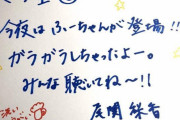 今夜はふーちゃんが登場!!
ガラガラしちゃったよー。
みんな聴いてね〜!!
尾関梨香